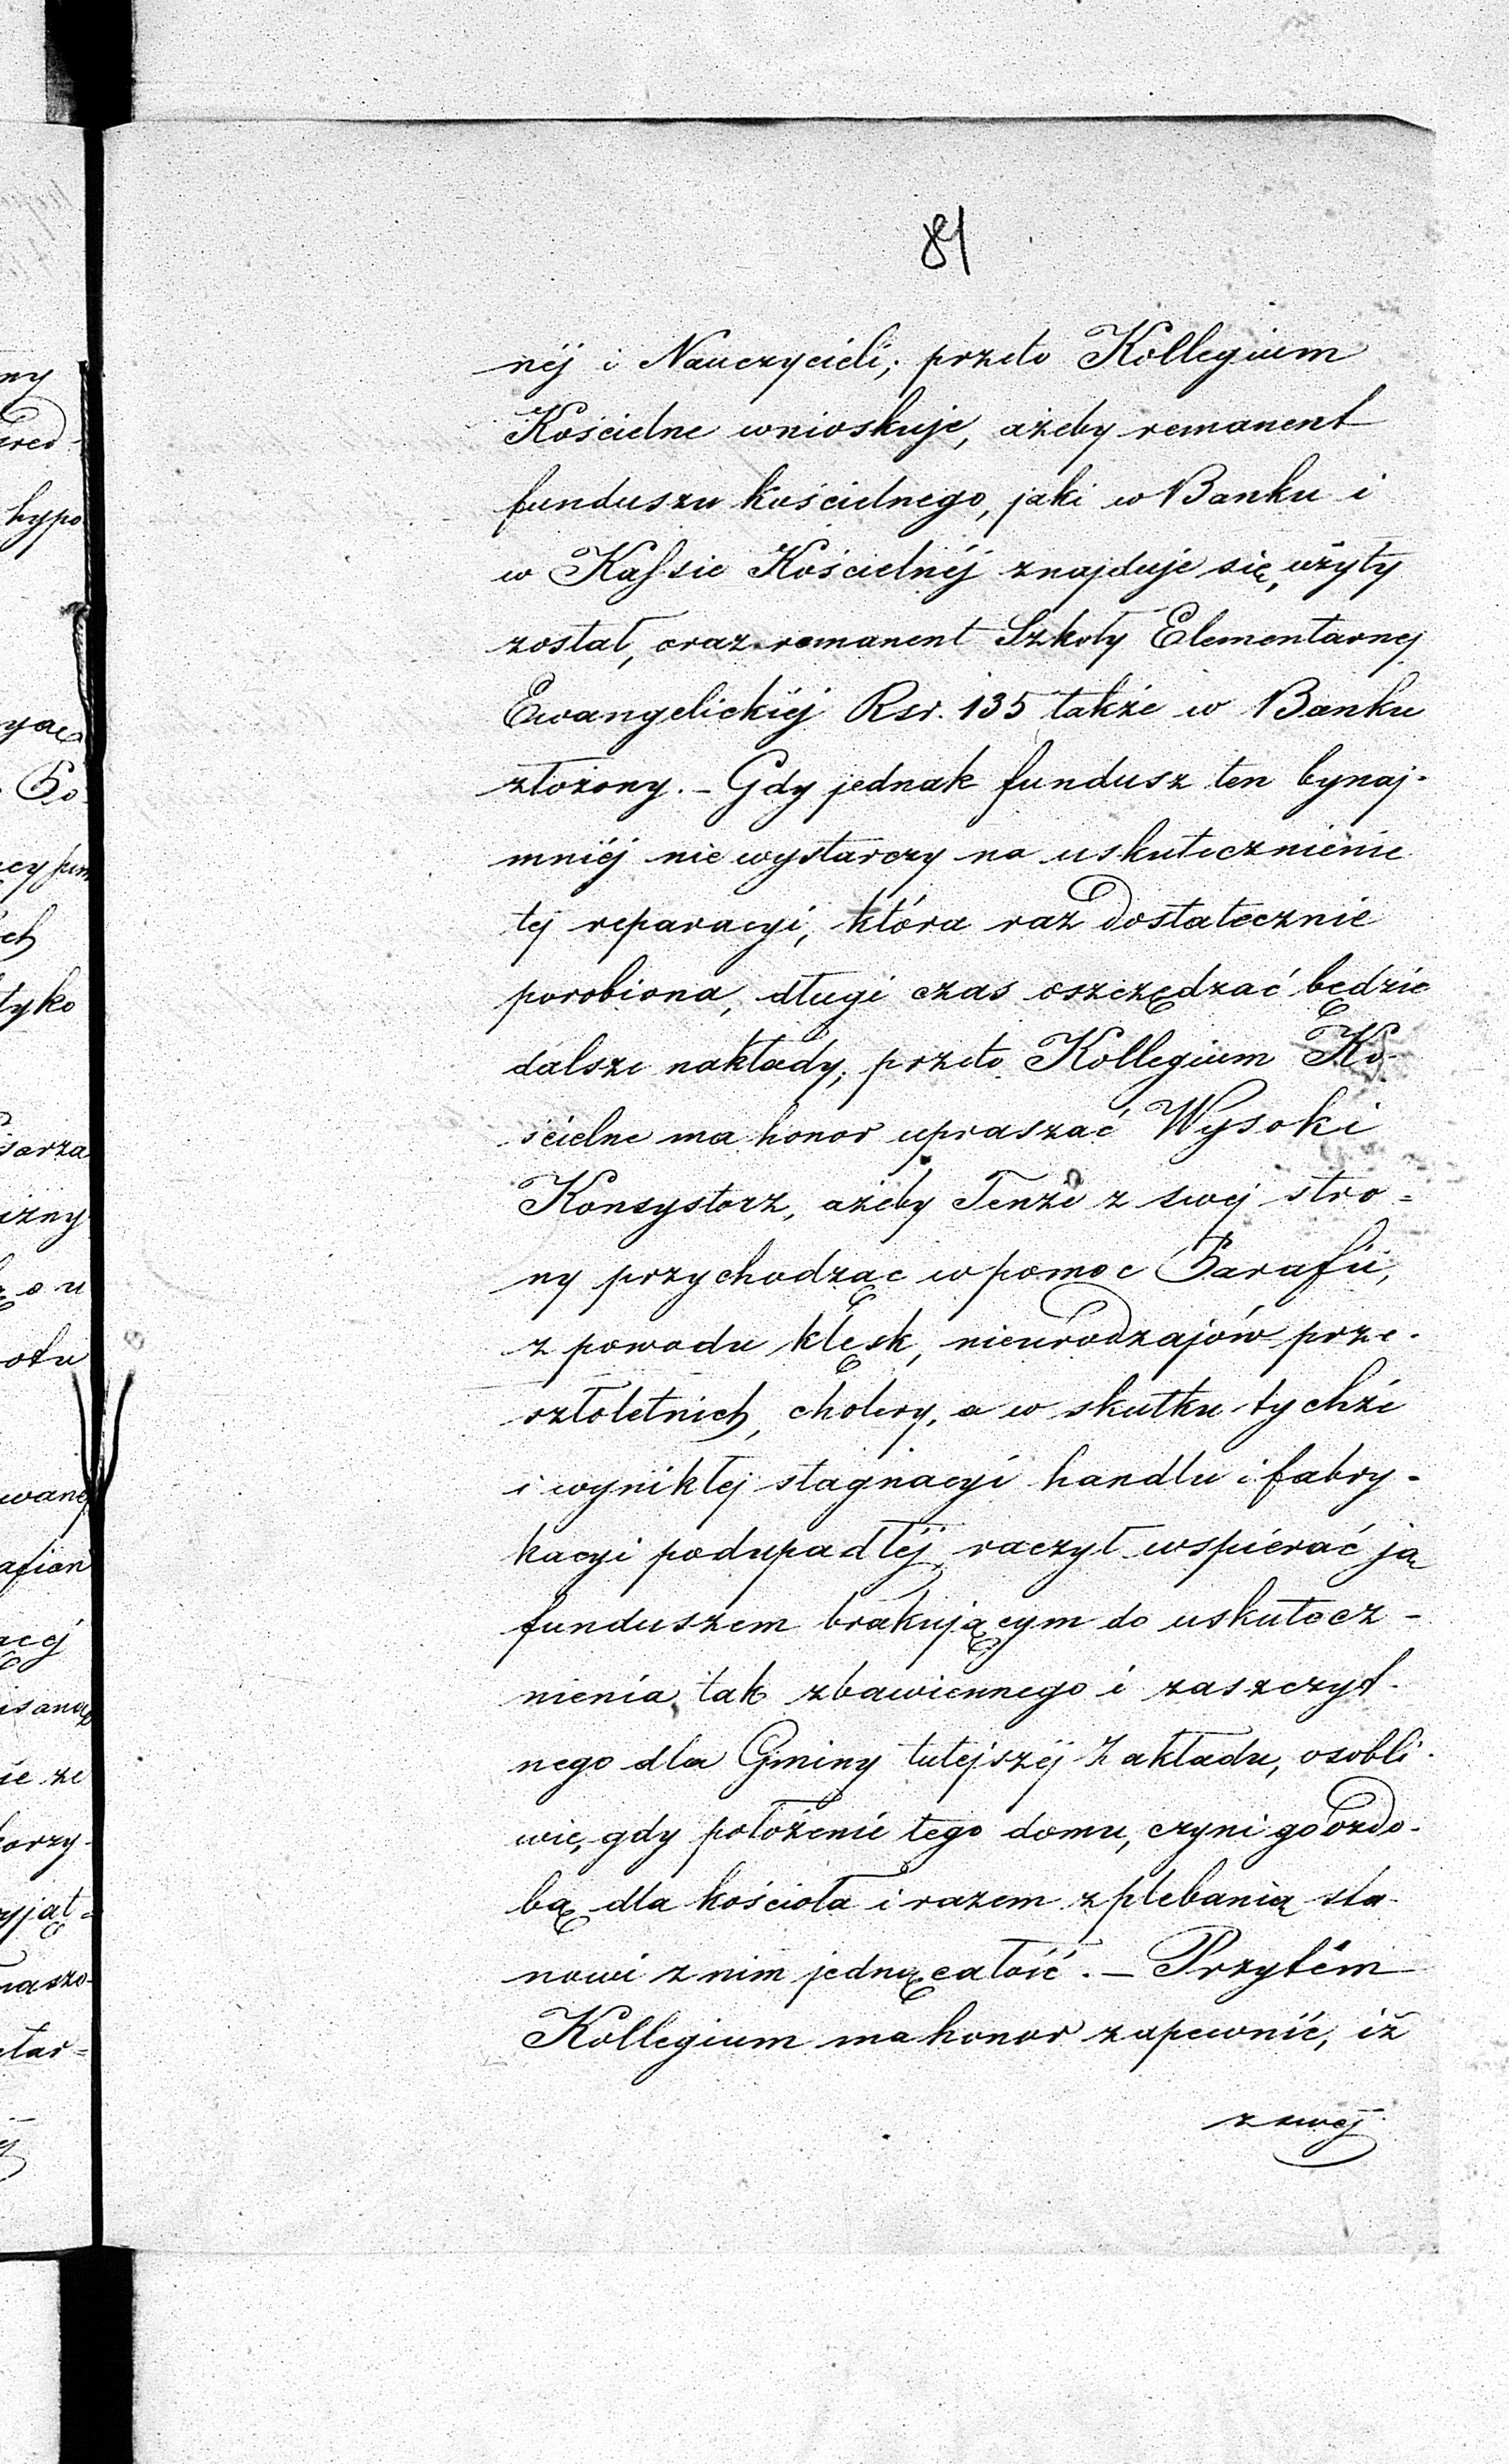 81
néj i Nauczycieli; przeto Kollegium
Kościelne wnioskuje, ażeby remanent
funduszu kościelnego, jaki w Banku i
w Kassie Kościelnéj znajduje się, użyty
został, oraz remanent Szkoły Elementarnej
Ewangelickiéj Rsr. 135 także w Banku
złożony. – Gdy jednak fundusz ten bynaj-
mniéj nie wystarczy na uskutecznienie
tej reparacyi, która raz dostatecznie
porobiona, długi czas oszczędzać będzie
dalsze nakłady; przeto Kollegium Ko-
ścielne ma honor upraszać Wysoki
Konsystorz, ażeby Tenże z swej stro=
ny przychodząc w pomoc Parafii,
z powodu klęsk, nieurodzajów prze-
szłoletnich, cholery, a w skutku tychże
i wynikłej stagnacyi handlu i fabry-
kacyi podupadłéj, raczył wspierać ją
funduszem brakującym do uskutecz-
nienia tak zbawiennego i zaszczyt-
nego dla Gminy tutejszéj Zakładu, osobli-
wie, gdy położenie tego domu, czyni go ozdo-
bą dla kościoła i razem z plebanią sta-
nowi z nim jednę całość. – Przytém
Kollegium ma honor zapewnić, iż
z swej
ny
hypo
ych
tyko
sarza
izny
otu
wanej
afian
isaną
ie ze
korzy-
yjąt=